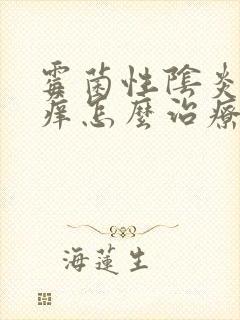 霉菌性陰炎
痒怎麼治療
海蓮生